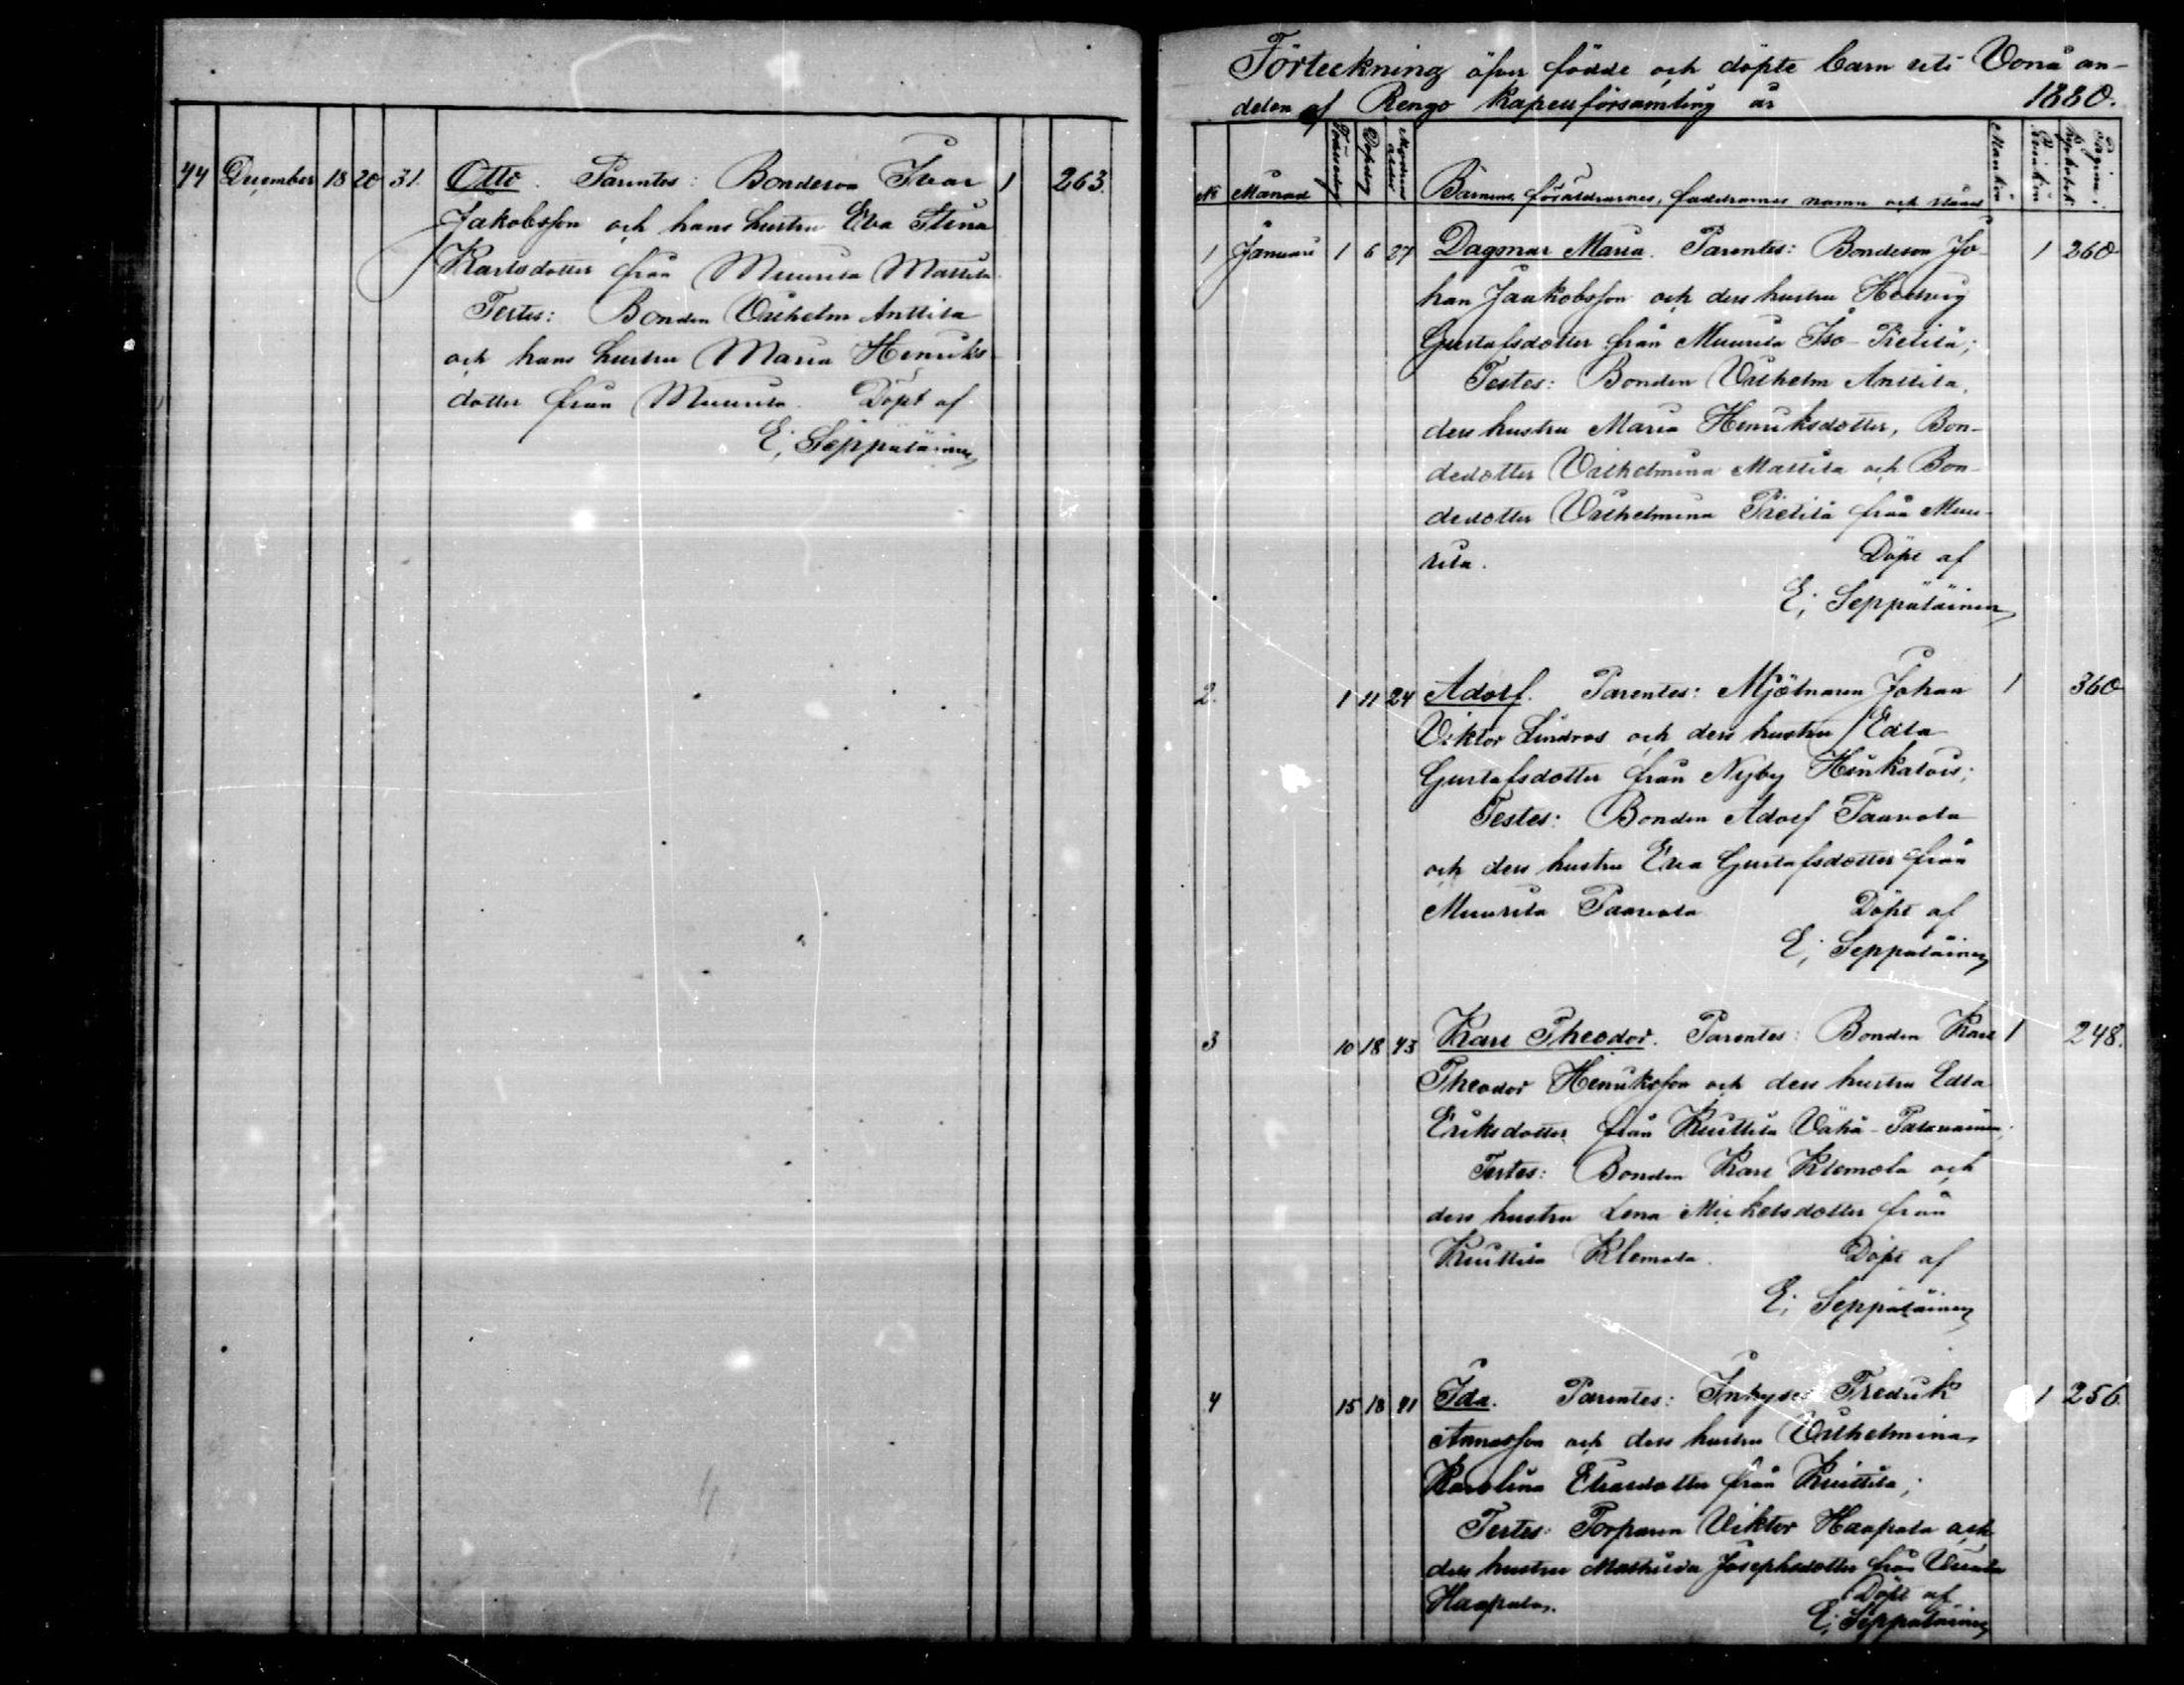 44 December 18 20 31. Otto. Parentes: Bondeson Ivar 1 263.
Jakobsson och hans hustru Eva Stina
Karlsdotter från Muurila Mattila.
Testes: Bonden Vilhelm Anttila
och hans hustru Maria Henriks-
dotter från Muurila. Döpt af
E; Seppäläinen
Förteckning öfver födde och döpte barn uti Vonå an-
delen af Rengo kapellförsamling år 1880.
No Månad Födelsedag Dopdag Modrens ålder Barnens, föräldrarnes, faddrarnes namn och stånd Mankön Qvinkön Pagina i kyrkobok
1 Januari 1 6 27 Dagmar Maria. Parentes: Bondeson Jo- 1 260
han Jaakobsson och dess hustru Hedvig
Gustafsdotter från Muurila Iso-Pietilä;
Testes: Bonden Vilhelm Anttila,
dess hustru Maria Henriksdotter, Bon-
dedotter Vilhelmina Mattila och Bon-
dedotter Vilhelmina Pietilä från Muu-
rila. Döpt af
E; Seppäläinen
2. 1 11 24 Adolf. Parentes: Mjölnaren Johan 1 360
Viktor Lindroos och dess hustru Edla
Gustafsdotter från Nyby;
Testes: Bonden Adolf Paavola
och dess hustru Eva Gustafsdotter från
Muurila Paavola Döpt af
E; Seppäläinen
3 10 18 43 Karl Theodor. Parentes: Bonden Karl 1 248.
Theodor Henriksson och dess hustru Edla
Eriksdotter från Kuittila Vähä-
Testes: Bonden Karl Klemola och
dess hustru Lena Mickelsdotter från
Kuittila Klemola. Döpt af
E; Seppäläinen
4 15 18 41 Ida. Parentes: Inhyses Fredrik 1 256.
och dess hustru Vilhelmina
Karolina Eliasdotter från Kuittila;
Testes: Torparen Viktor Haapala och
dess hustru Mathilda Josephsdotter från
Haapala. Döpt af
E; Seppäläinen